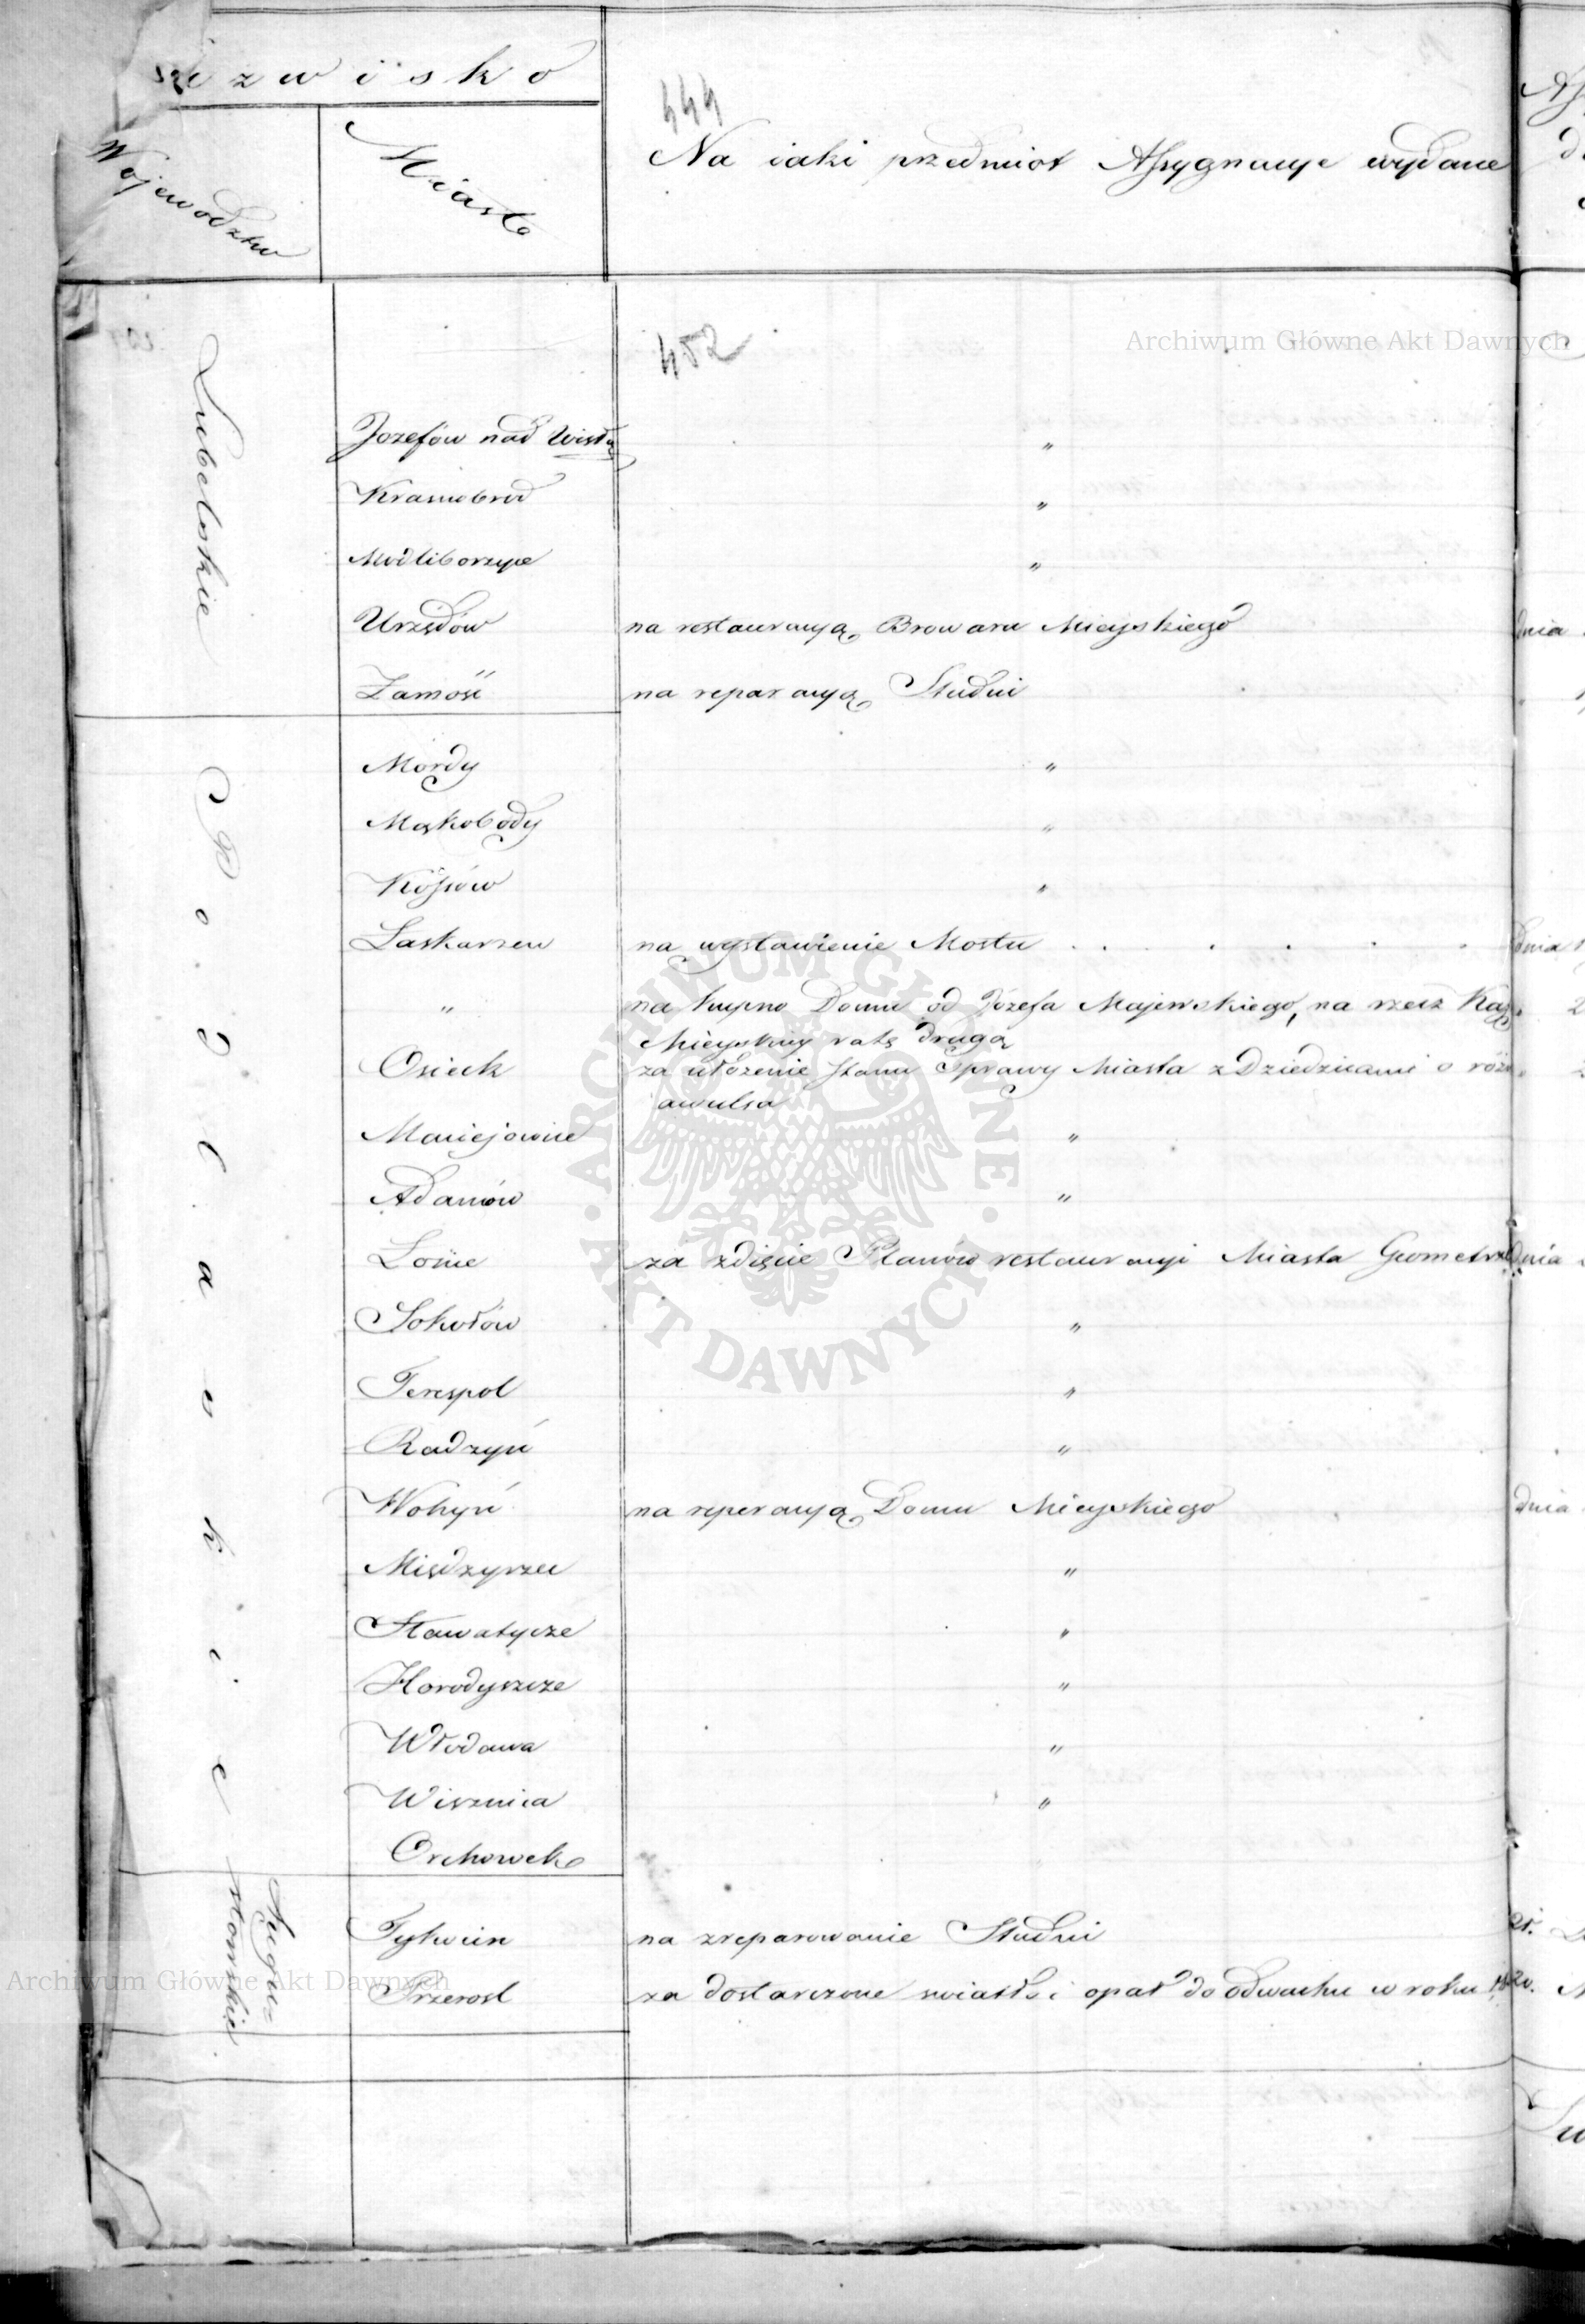 Nazwisko
444
Województwa
Miasto
Na iaki przedmiot Assygnacye wydane
452
Archiwum Główne Akt Dawnych
Lubelskie
Jozefów nad Wisłą "
Krasnobrod "
Modliborzyce "
Urzędów na restauracyą Browaru Mieyskiego dnia
Zamość na reparacyą Studni "
Podlaskie
Mordy "
Mąkobody "
Kossów "
Laskarzew na wystawienie Mostu . . . . . . dnia
" na kupno Domu od Józefa Majewskiego, na rzecz Kassy
Mieyskiey ratę drugą
Osieck za ułożenie stanu Sprawy Miasta z Dziedzicami o róźne
awulsa
Maciejowice "
Adamów "
Łosice za zdięcie Planów restauracyi Miasta Geometrze dnia
Sokołów "
Terespol "
Radzyń "
Wohyń na reperacyą Domu Mieyskiego dnia
Międzyrzec "
Sławatycze "
Horodyszcze "
Włodawa "
Wisznica "
Orchowek
Augustowskie
Tykocin na zreparowanie Studni
Przerosl za dostarczone swiatło i opał do odwachu w roku 1820.
Archiwum Główne Akt Dawnych
ARCHIWUM GŁÓWNE AKT DAWNYCH